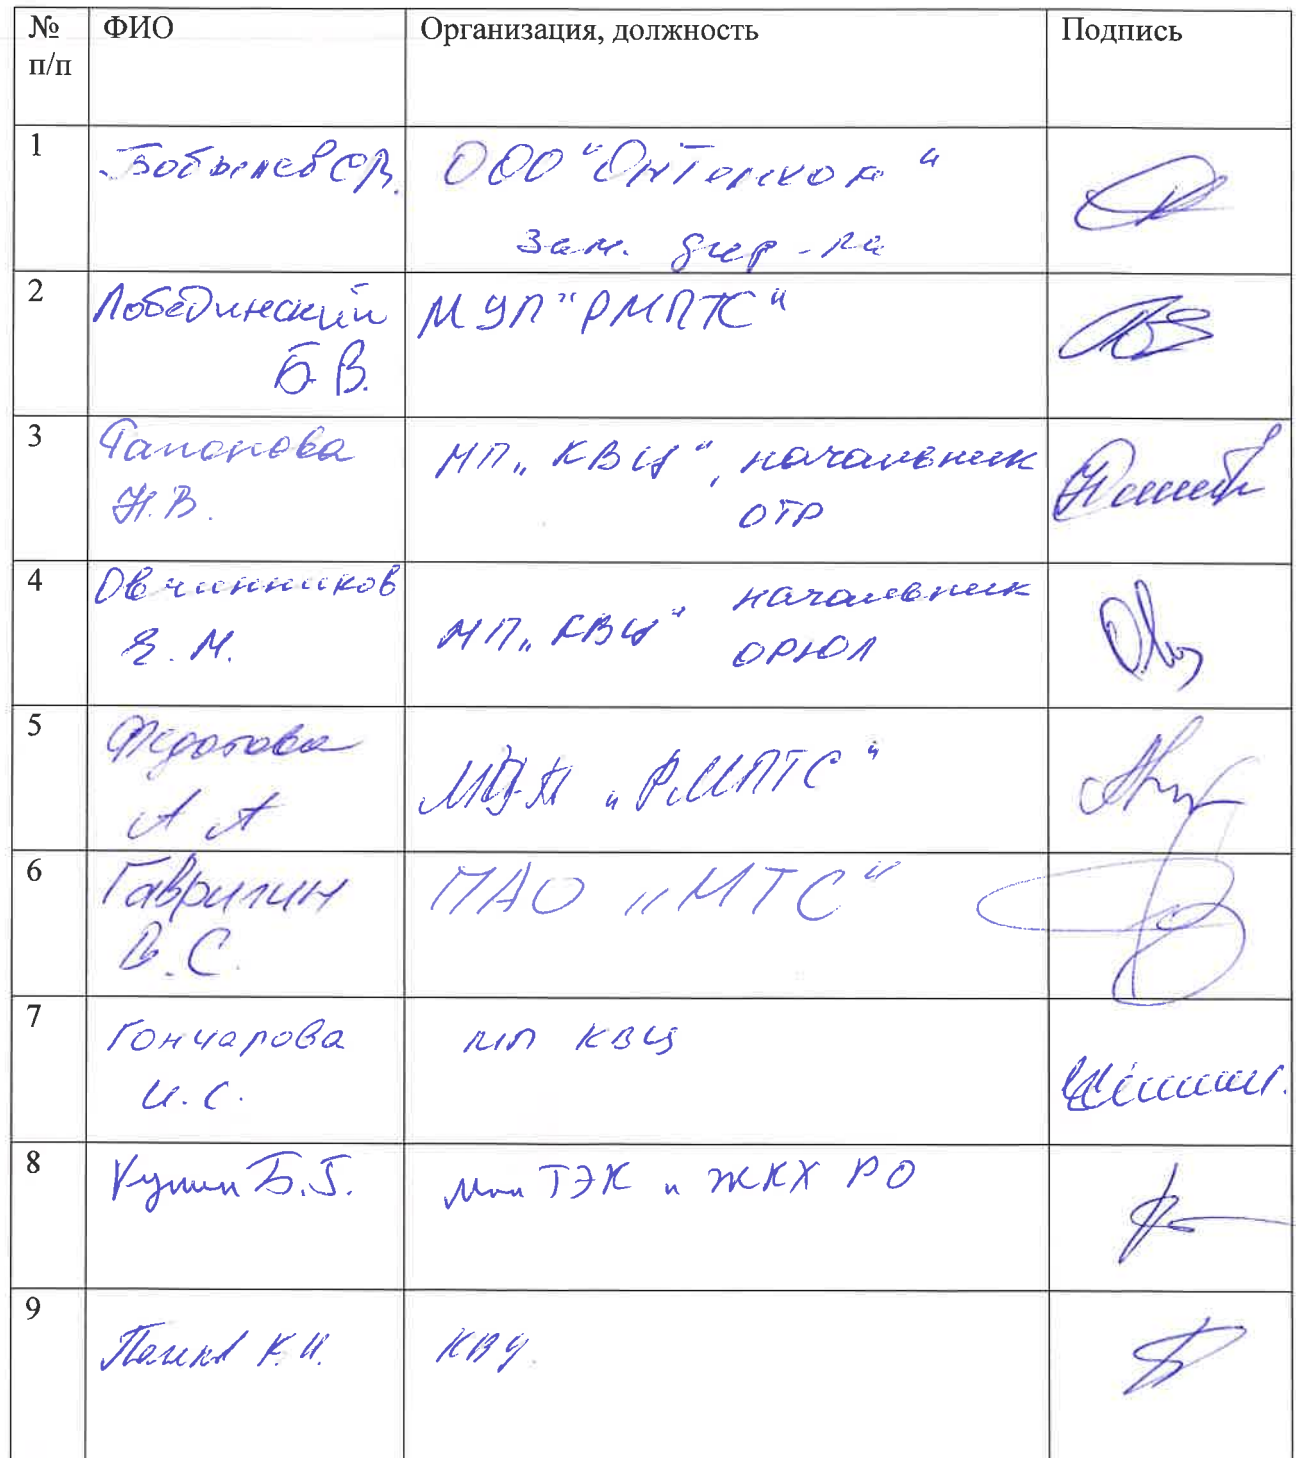 № п/п ФИО Организация, должность Подпись
1 Бобылев С.В. ООО "ОнТелеком"
зам. дир-ра
2 Лобединский МУП "РМПТС"
Б В.
3 Гапонова МП „КВЦ", начальник
Н.В. ОТР
4 Овчинников МП „КВЦ" начальник
Е. М. ОРЮЛ
5 Федотова МУП „РМПТС"
А А
6 Гаврилин ПАО „МТС"
В.С.
7 Гончарова МП КВЦ
И.С.
8 Б.Г. Мин ТЭК и ЖКХ РО
9 К.И.